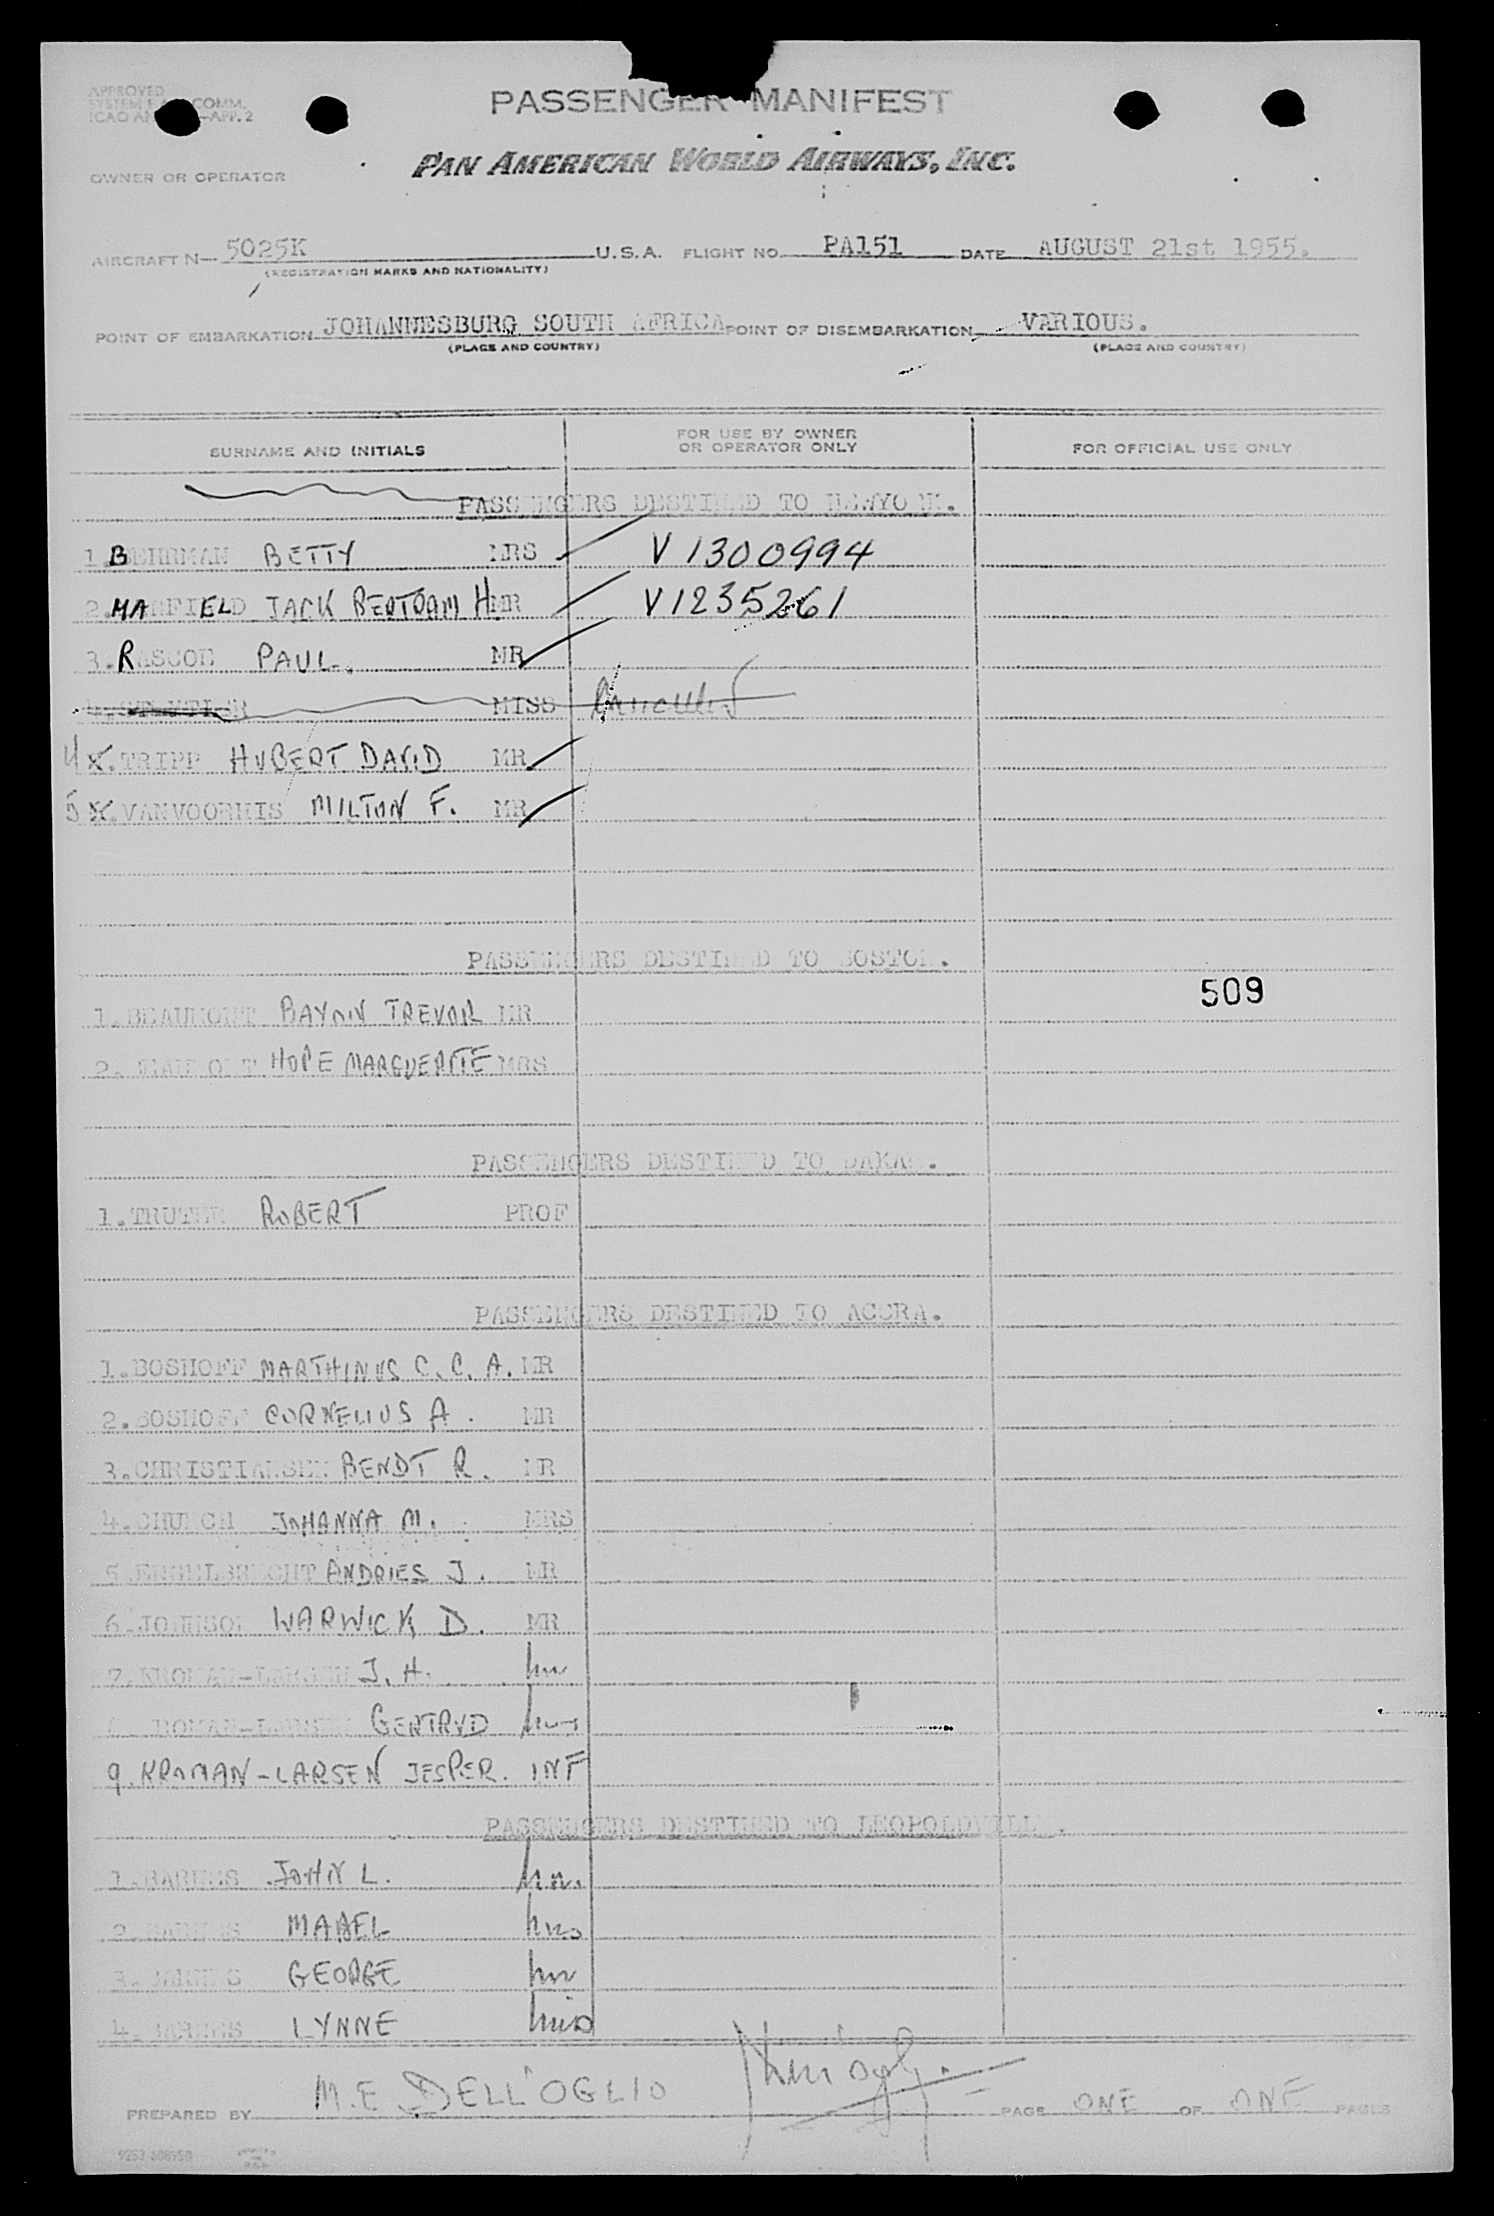 APPROVED
SYSTEM COMM.
ICAO AN —APP. 2
PASSENGER MANIFEST
OWNER OR OPERATOR
PAN AMERICAN WORLD AIRWAYS, INC.
AIRCRAFT N— 5025K U.S.A. FLIGHT NO. PA151 DATE AUGUST 21st 1955.
(REGISTRATION MARKS AND NATIONALITY)
POINT OF EMBARKATION JOHANNESBURG SOUTH AFRICA POINT OF DISEMBARKATION VARIOUS.
(PLACE AND COUNTRY) (PLACE AND COUNTRY)
SURNAME AND INITIALS
FOR USE BY OWNER
OR OPERATOR ONLY
FOR OFFICIAL USE ONLY
PASSENGERS DESTINED TO NEWYORK.
1. BEHRMAN BETTY MRS V 1300994
2. JACK BERTRAM H. MR V1235261
3. RASCOE PAUL. MR
MISS Cancelled
4 5. TRIPP HUBERT DAVID MR
5 VANVOORHIS MILTON F. MR
PASSENGERS DESTINED TO BOSTON.
509
1. BEAUMONT TREVOR MR
2. BEAUMONT HOPE MARGUERITE MRS
PASSENGERS DESTINED TO DAKAR.
1. TRUTER ROBERT PROF
PASSENGERS DESTINED TO ACCRA.
1. BOSHOFF MARTHINUS C. C. A. MR
2. BOSHOFF CORNELIUS A. MR
3. CHRISTIANSEN BENDT R. MR
4. CHURCH JOHANNA M. MRS
5. ENGELBRECHT ANDRIES J. MR
6. JOHNSON WARWICK D. MR
7. KROMAN-LARSEN J. H. Mr
KROMAN-LARSEN GERTRUD Mrs
9. KROMAN-LARSEN JESPER. INF
PASSENGERS DESTINED TO LEOPOLDVILLE.
1. BARENS JOHN L. Mr.
2. BARENS MABEL Mrs
3. BARENS GEORGE Mr
4. BARENS LYNNE Miss
PREPARED BY M.E. DELL'OGLIO PAGE ONE OF ONE PAGES